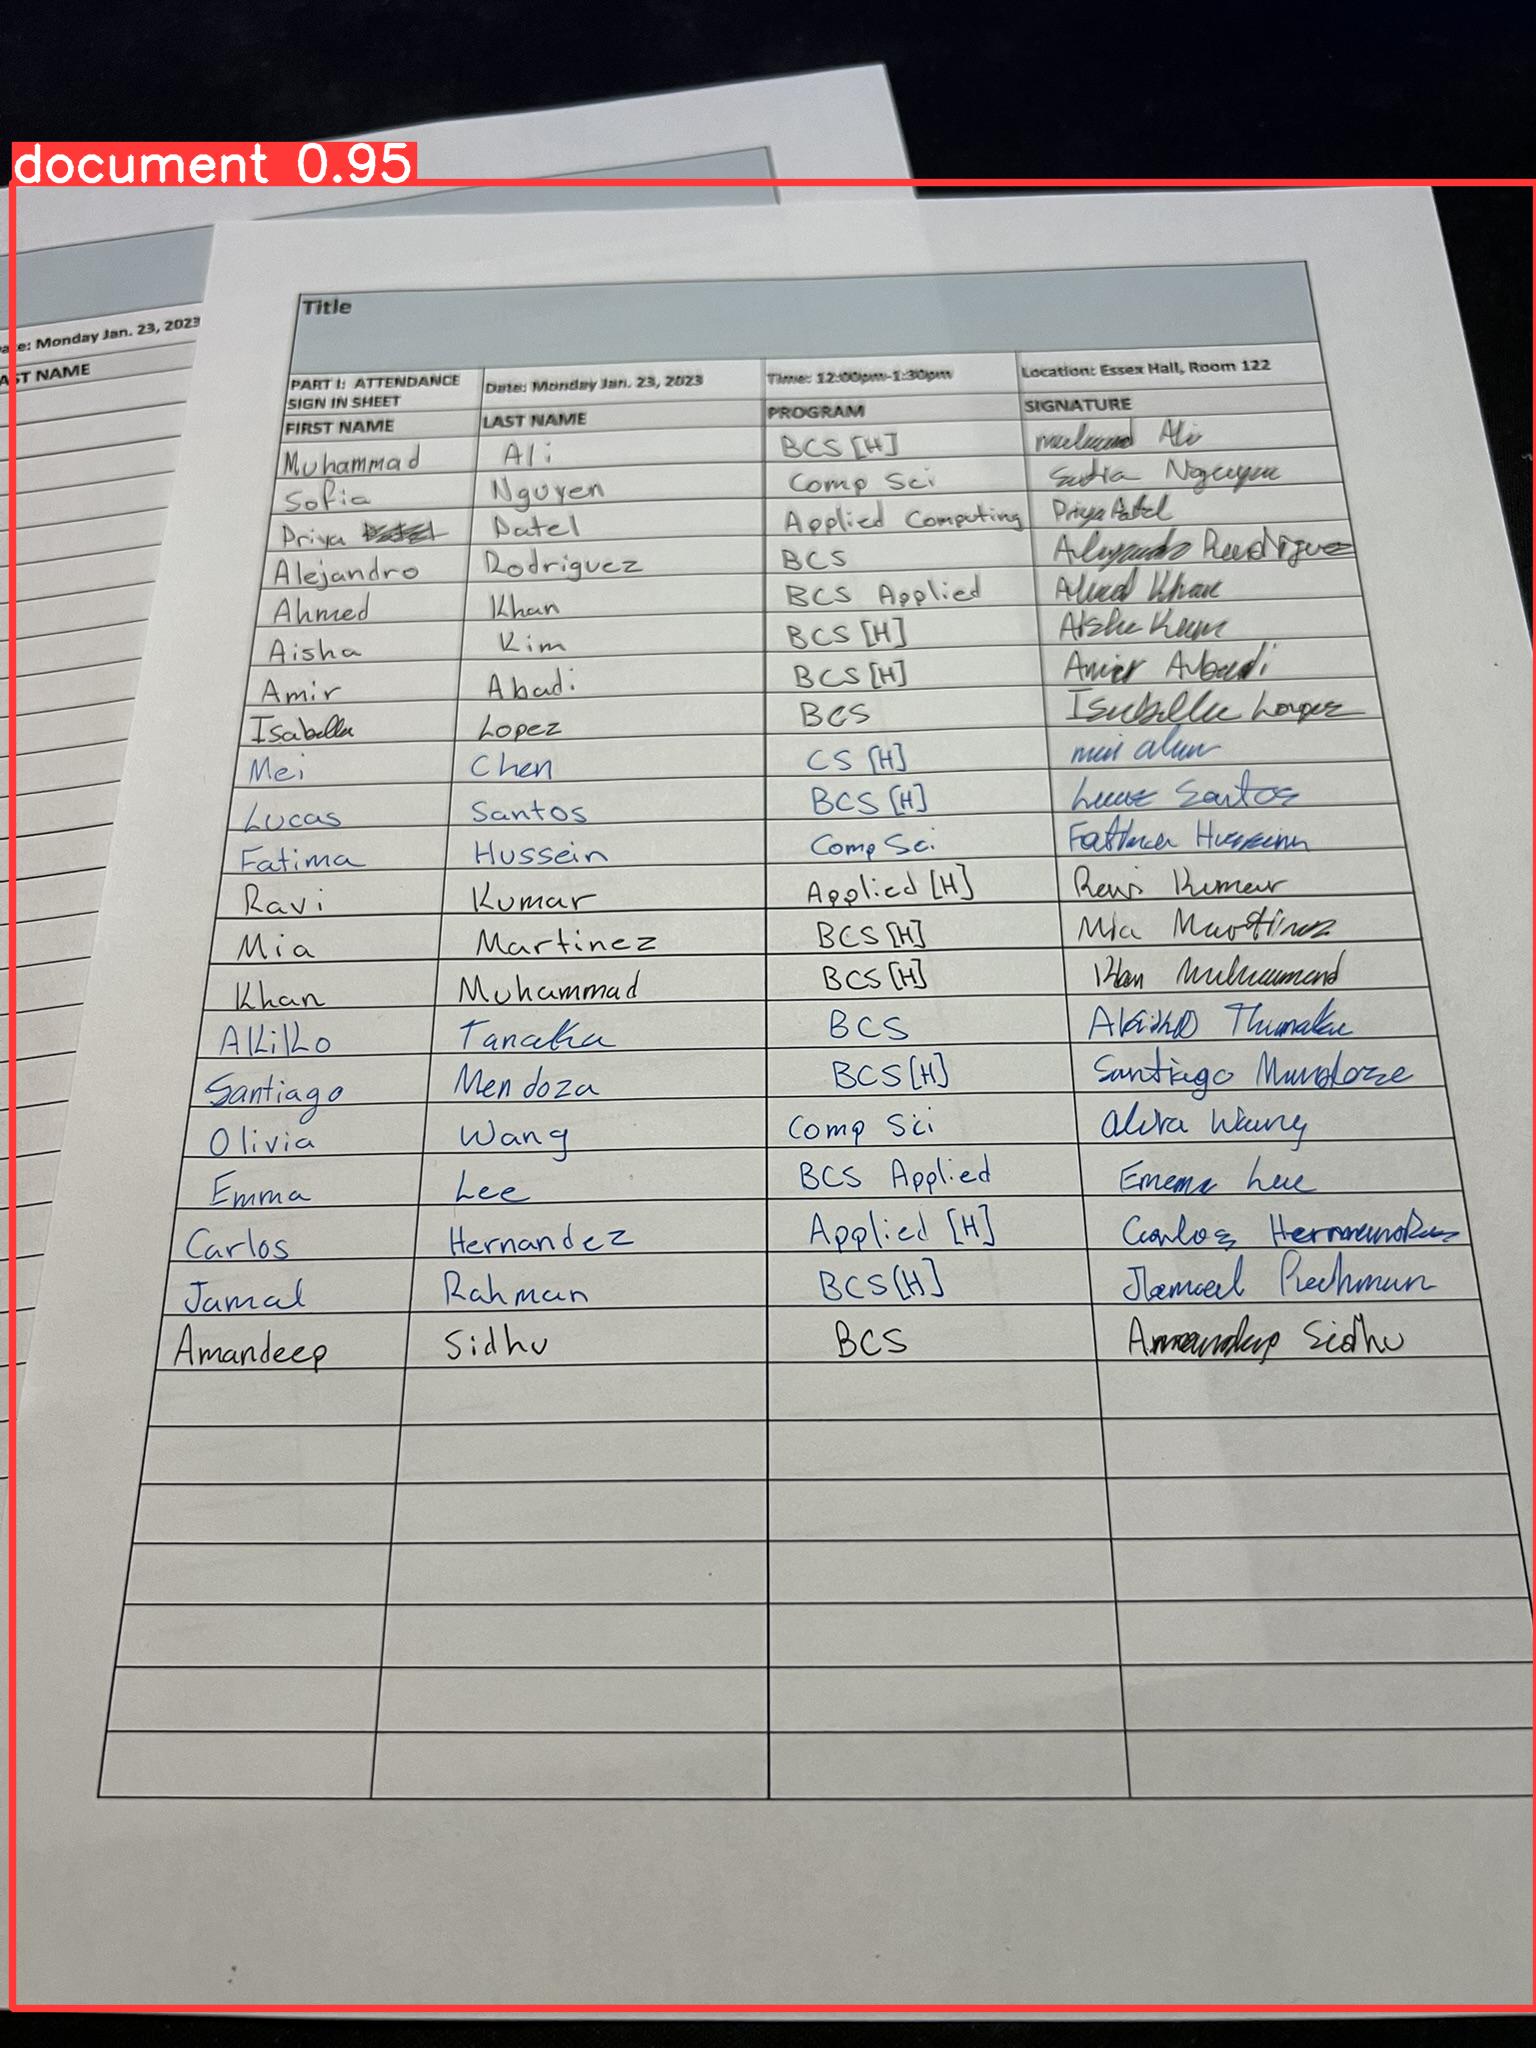 document 0.95
Title
Date: Monday Jan. 23, 2023
LAST NAME
PART I: ATTENDANCE SIGN IN SHEET Date: Monday Jan. 23, 2023 Time: 12:00pm-1:30pm Location: Essex Hall, Room 122
FIRST NAME LAST NAME PROGRAM SIGNATURE
Muhammad Ali BCS [H] Ali
Sofia Nguyen Comp Sci Nguyen
Priya Patel Applied Computing Priya Patel
Alejandro Rodriguez BCS Alejandro Rodriguez
Ahmed Khan BCS Applied Ahmed Khan
Aisha Kim BCS [H] Aisha Kim
Amir Abadi BCS [H] Amir Abadi
Isabella Lopez BCS Isabella Lopez
Mei Chen CS [H] mei
Lucas Santos BCS [H] Lucas Santos
Fatima Hussein Comp Sci Fatima Hussein
Ravi Kumar Applied [H] Ravi Kumar
Mia Martinez BCS [H] Mia Martinez
Khan Muhammad BCS [H] Khan Muhammad
Akiko Tanaka BCS Akiko
Santiago Mendoza BCS [H] Santiago Mendoza
Olivia Wang Comp Sci Wang
Emma Lee BCS Applied Emma Lee
Carlos Hernandez Applied [H] Carlos Hernandez
Jamal Rahman BCS [H] Jamal Rahman
Amandeep Sidhu BCS Amandeep Sidhu